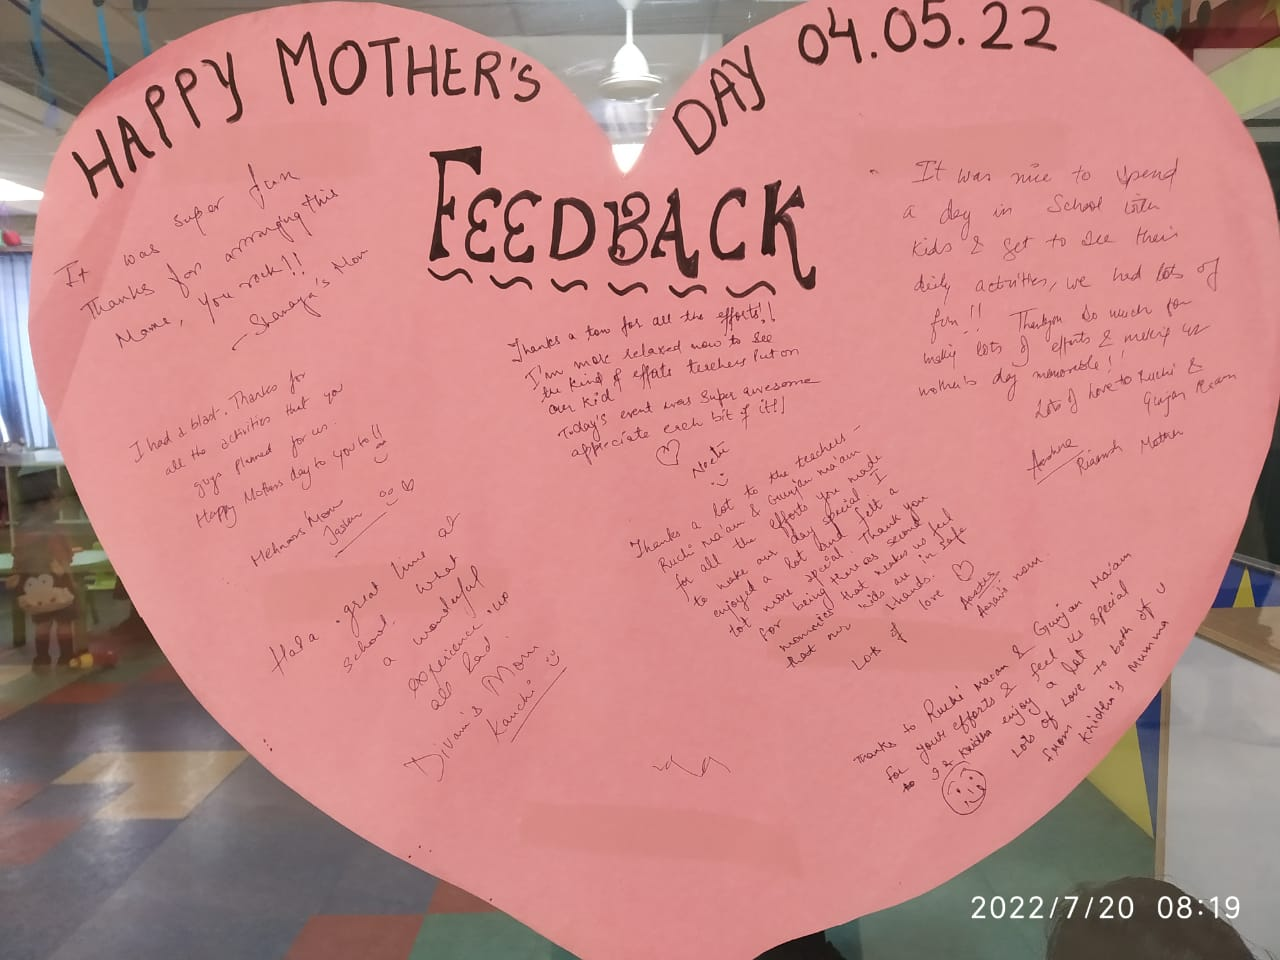 HAPPY MOTHER'S DAY 04.05.22
FEEDBACK
It was super fun
Thanks for arranging this
Mame, you rock!!
- Shanaya's Mom
I had a blast. Thanks for
all the activities that you
guys planned for us.
Happy Mothers day to you to!!
Mehnars Mom
Had a great time at
school. What
a wonderful
experience us
all had.
Divani's Mom
Kanchi
Thanks a ton for all the efforts!!
I'm more relaxed now to see
the kind of efforts teachers put on
our kid
Today's event was super awesome
appreciate each bit of it!!
Neeti
Thanks a lot to the teachers -
Ruchi ma'am & Gunjan ma'am
for all the efforts you made
to make our day special I
enjoyed a lot and felt a
lot more special. Thank you
for being there as second
mommies that makes us feel
that our kids are in safe
hands.
Lots of love
Aarav's mom.
It was nice to spend
a day in School with
kids & get to see their
daily activities, we had lots of
fun!! Thankyou so much for
making lots of efforts & making us
mother's day memorable!!
Lots of love to Ruchi &
Gunjan Mam
Mother
Thanks to Ruchi Ma'am & Gunjan Ma'am
for your efforts & feel us special
to I & Kridha enjoy a lot
Lots of Love to both of U
from Kridha's Mumma
2022/7/20 08:19